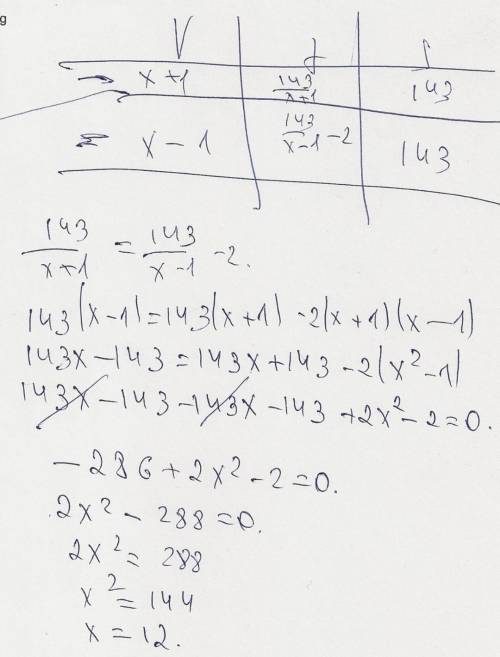 g
V t S
→ x+1 143/(x+1) 143
x-1 143/(x-1) -2 143
143/(x+1) = 143/(x-1) -2.
143(x-1)=143(x+1) -2(x+1)(x-1)
143x-143=143x+143-2(x²-1)
143x-143-143x-143+2x²-2=0.
-286+2x²-2=0.
2x²-288=0.
2x²= 288
x²=144
x=12.